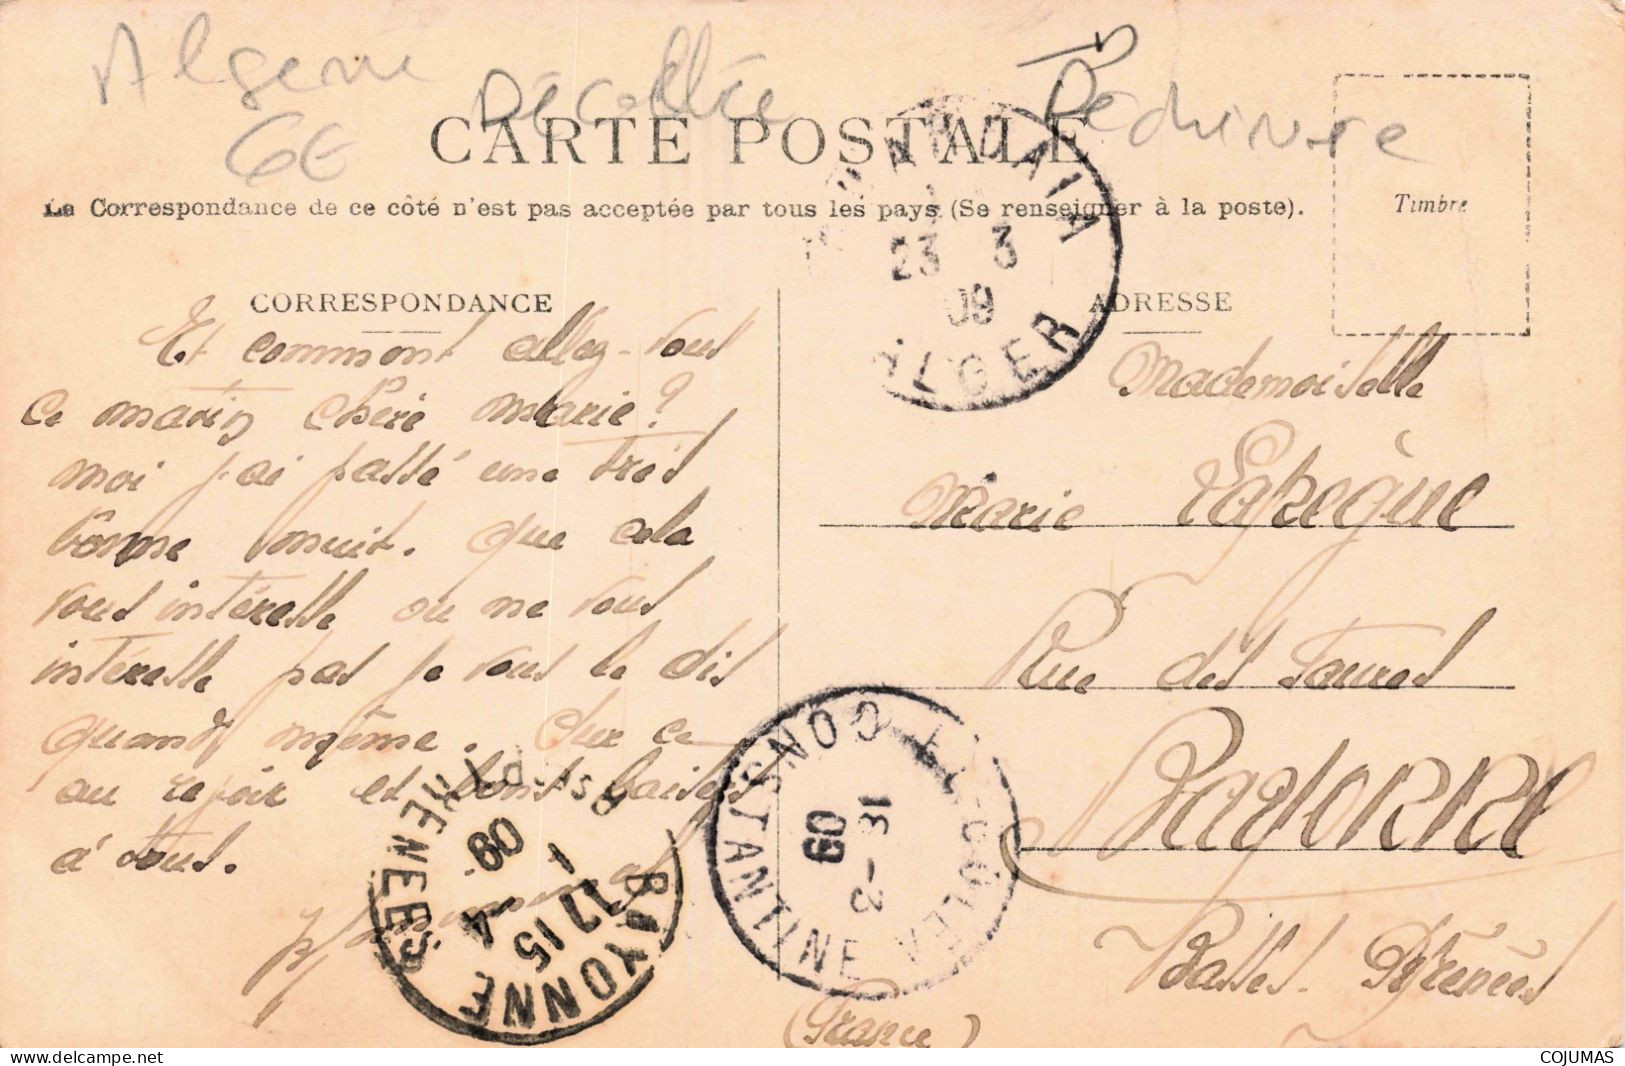 Algerie
6€
Décollée
Déchirure
CARTE POSTALE
La Correspondance de ce côté n'est pas acceptée par tous les pays (Se renseigner à la poste).
Timbre
CORRESPONDANCE
Et comment allez-vous
ce matin chère Marie?
moi j'ai passé une très
bonne nuit. que cela
vous intéresse ou ne vous
intéresse pas je vous le dis
quand même. Sur ce
au revoir et bons baisers
à tous.
ADRESSE
Mademoiselle
Marie Lapègue
Rue des Faures
Bayonne
Basses. Pyrénées
(France)
23 3
09
ALGER
EL-GOLEA
CONSTANTINE
18 -3
09
BAYONNE
17 15
1 -4
09
COJUMAS
www.delcampe.net